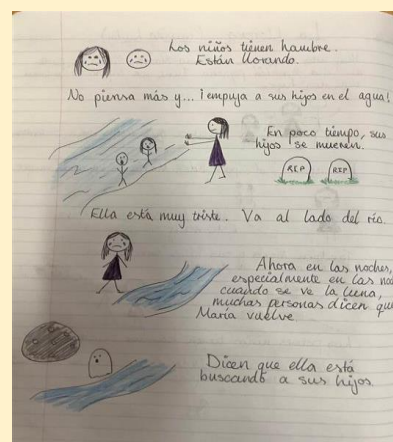 Los niños tienen hambre.
Están llorando.
No piensa más y... ¡empuja a sus hijos en el agua!
En poco tiempo, sus
hijos se mueren.
REP REP
Ella está muy triste. Va al lado del río.
Ahora en las noches,
especialmente en las no
cuando se ve la luna,
muchas personas dicen que
María vuelve
Dicen que ella está
buscando a sus hijos.